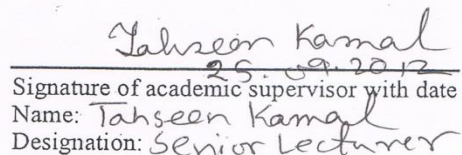 Tahseen Kamal
25.09.2012
Signature of academic supervisor with date
Name: Tahseen Kamal
Designation: Senior Lecturer